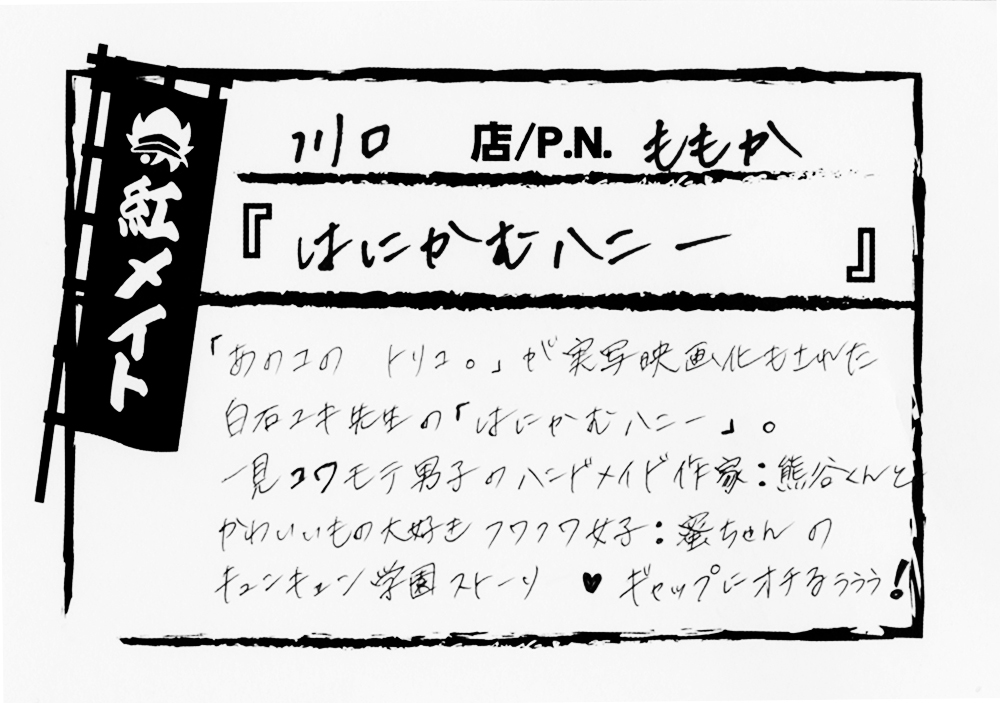 紅メイト
川口 店/P.N. ももか
『はにかむハニー』
「あのコの トリコ。」が実写映画化もされた
白石ユキ先生の「はにかむハニー」。
一見コワモテ男子のハンドメイド作家：熊谷くんと
かわいいもの大好きフワフワ女子：蜜ちゃんの
キュンキュン学園ストーリ ♥ ギャップにオチるぅぅぅ!